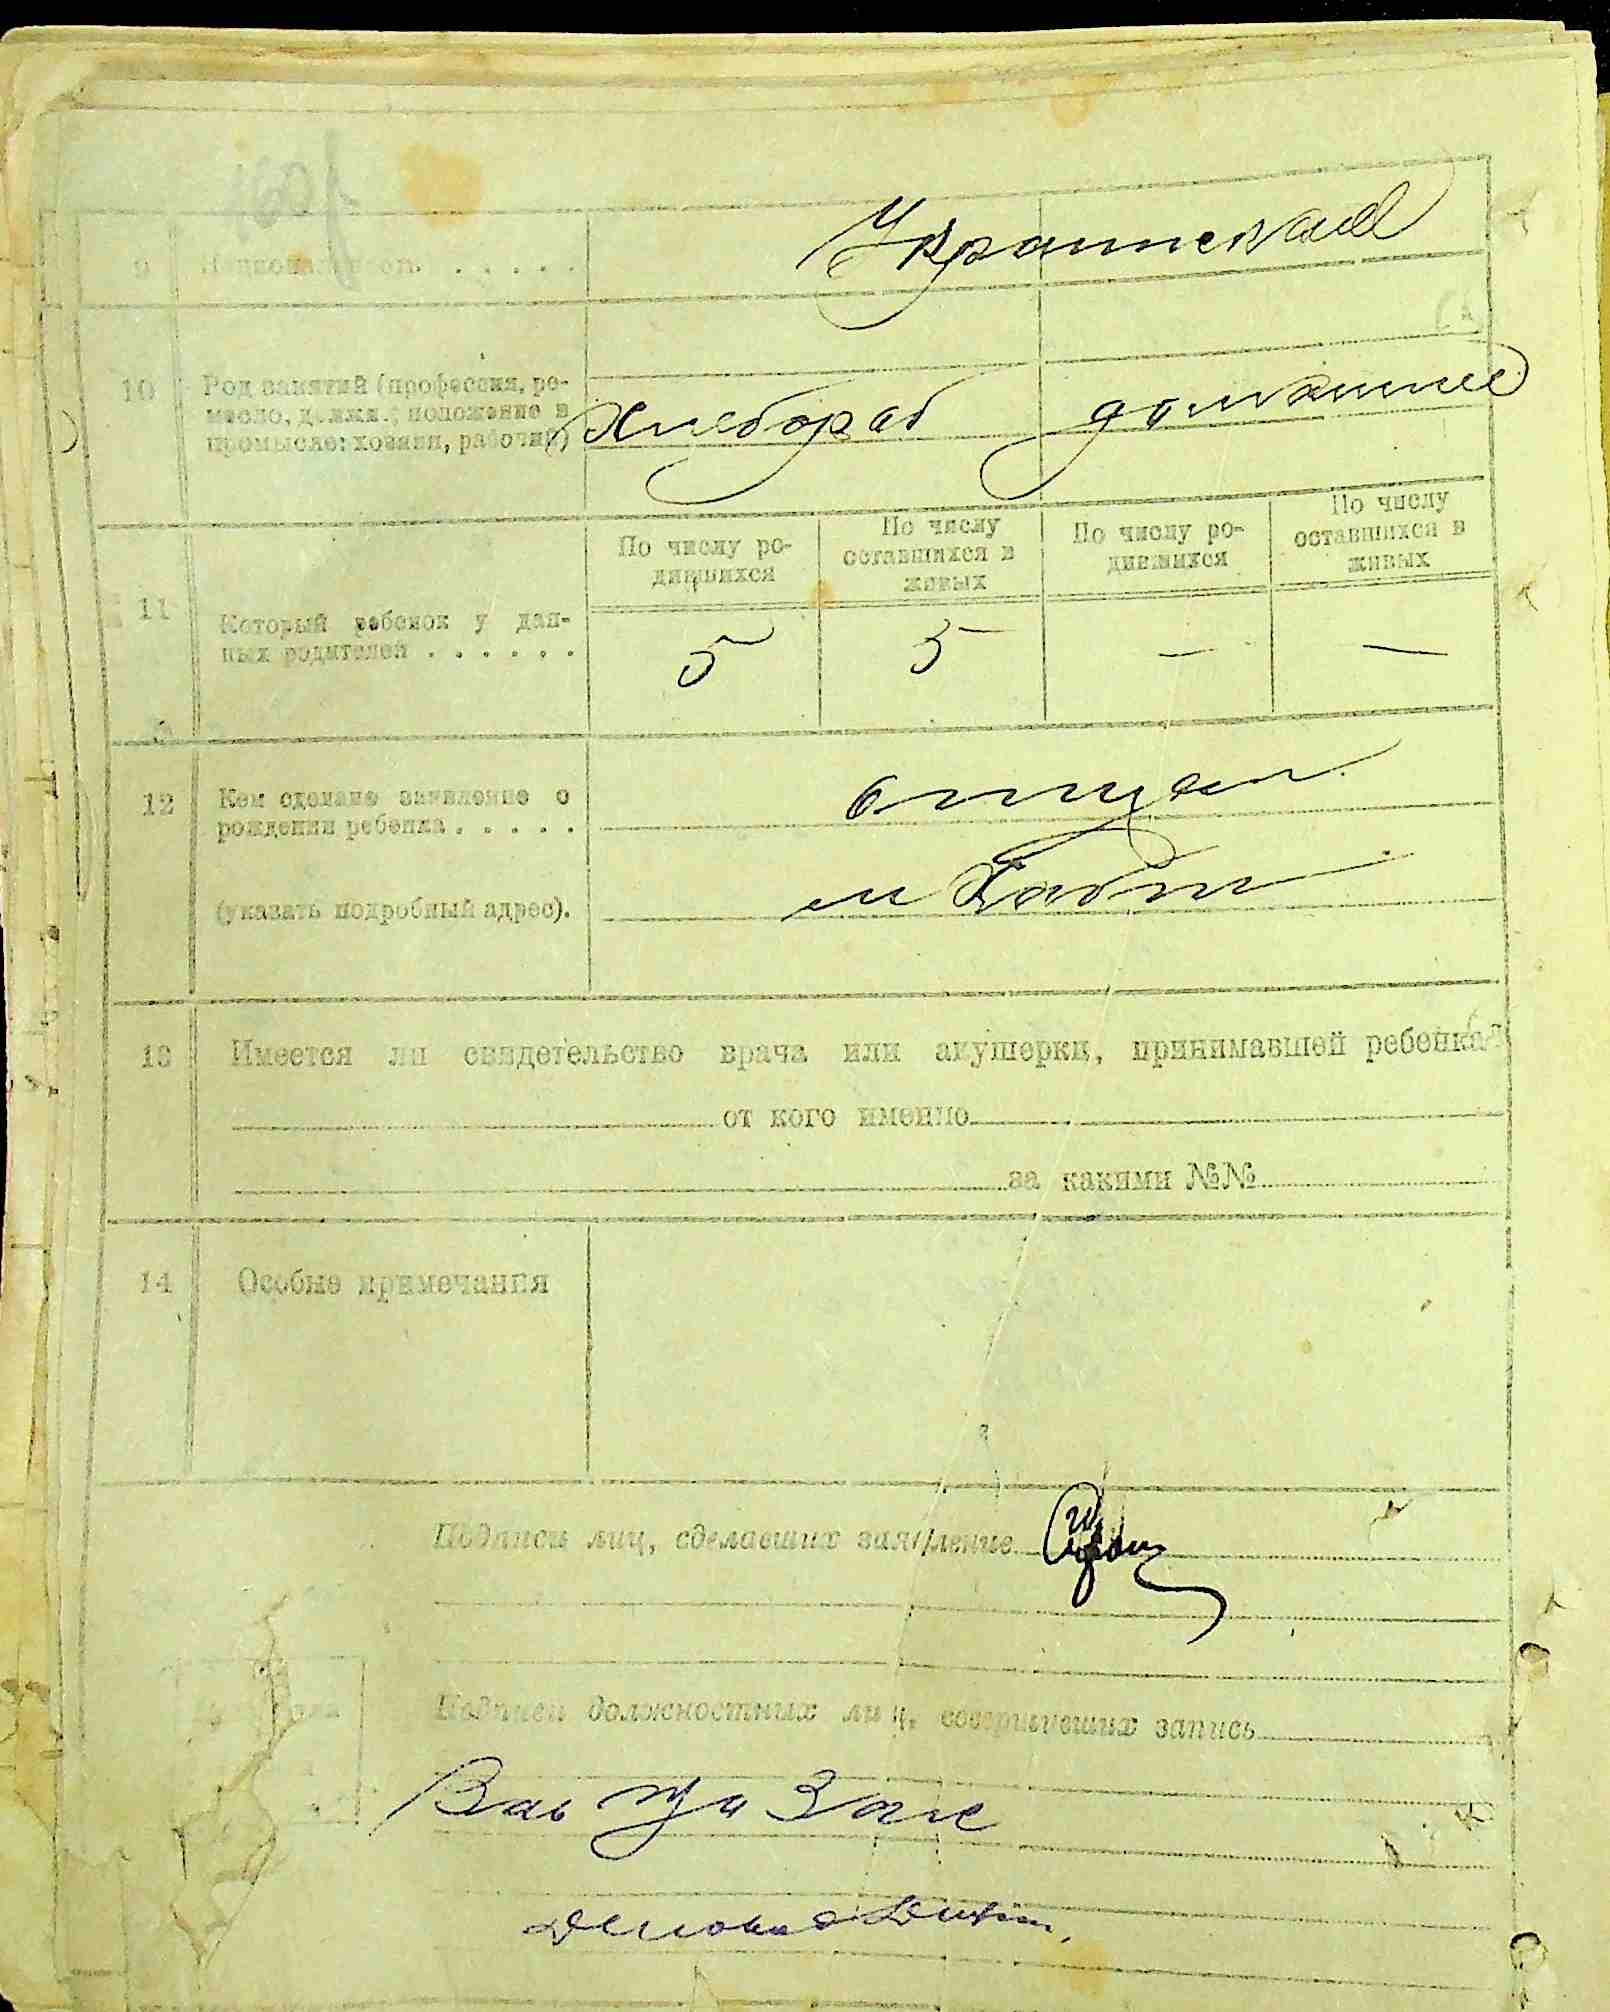 9 Национальность. . . . . .
Украинская
10 Род занятий (профессия, ре-
месло, должн.; положение в
промысле: хозяин, рабочий)
Хлебороб домашнее
11 Который ребенок у дан-
ных родителей . . . . . .
По числу ро-
дившихся
По числу
оставшихся в
живых
По числу ро-
дившихся
По числу
оставшихся в
живых
5 5 — —
12 Кем сделано заявление о
рождении ребенка . . . . .
отцем
(указать подробный адрес).
м
13 Имеется ли свидетельство врача или акушерки, принимавшей ребенка
от кого именно
за какими №№
14 Особые примечания
Подписи лиц, сделавших заявление
Подписи должностных лиц, совершивших запись